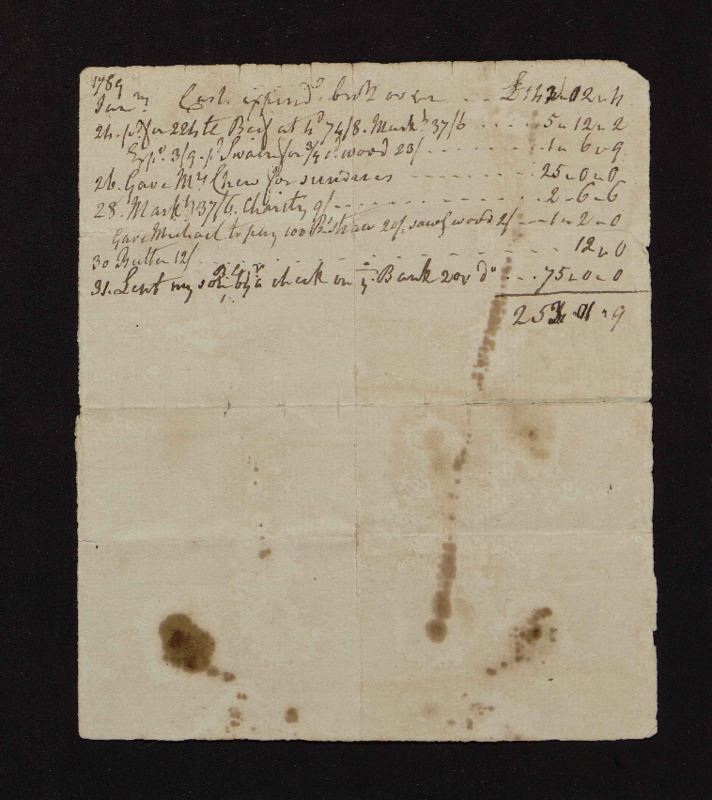 1789
Janry. Cash expend'd brot over .. £143.02.4
24. pd. for 224 lb Beef at 4d 74/8. Markt 37/6 .... 5.12.2
Exps. 3/9. pd. Swain for 3/4 cd. wood 23/ ....... 1.6.9
26. Gave Mrs Chew for sundries ....... 25.0.0
28. Markt 37/6. Charity 9/ .......... 2.6.6
Gave Michael to pay 100 Bs. straw 20/. sawg wood 2/ -- 1.2.0
30 Butter 12/ .......... 12.0
31. Lent my son by a check on ye. Bank 200 do ... 75.0.0
253.01.9